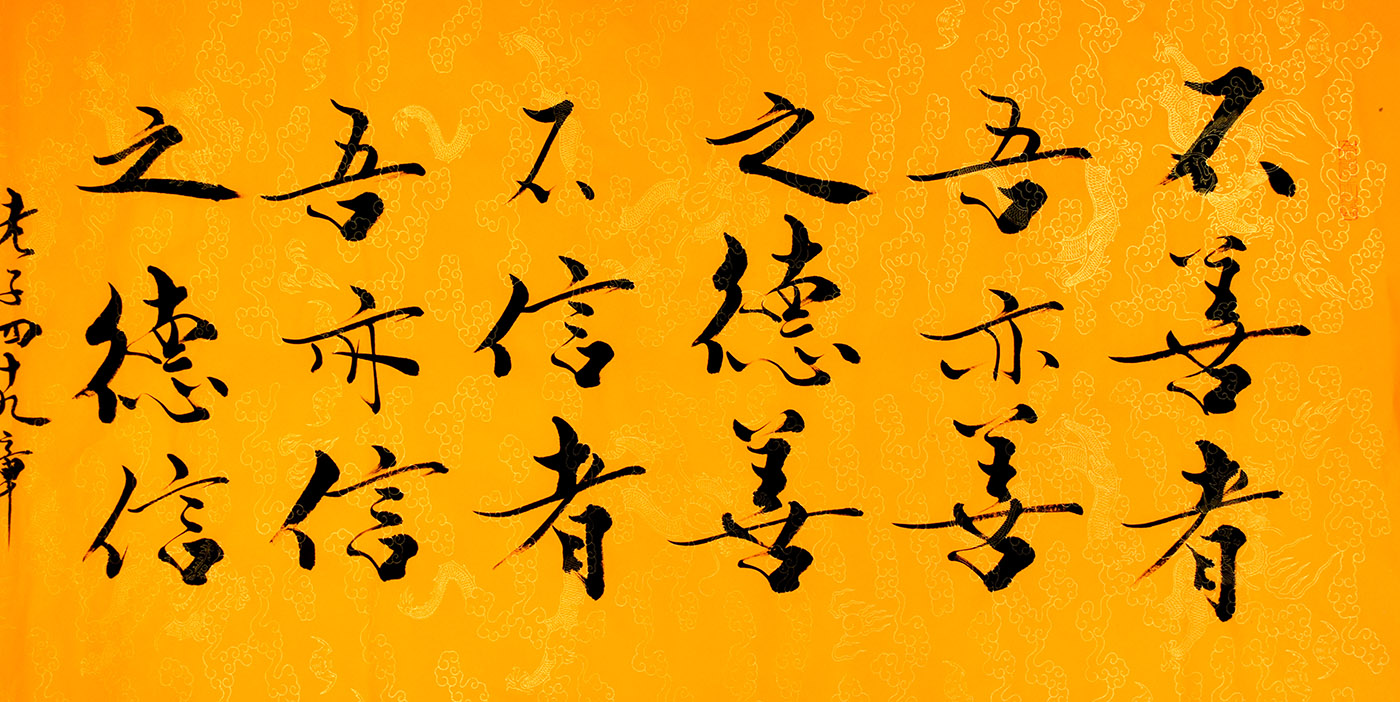 不善者
吾亦善
之德善
不信者
吾亦信
之德信
老子四十九章